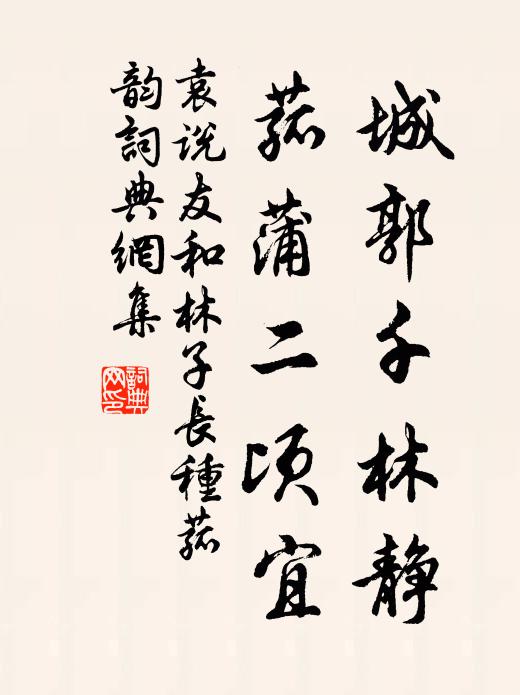 城郭千林静
菰蒲二頃宜
袁说友和林子長種菰
韵詞典網集
詞典
网印